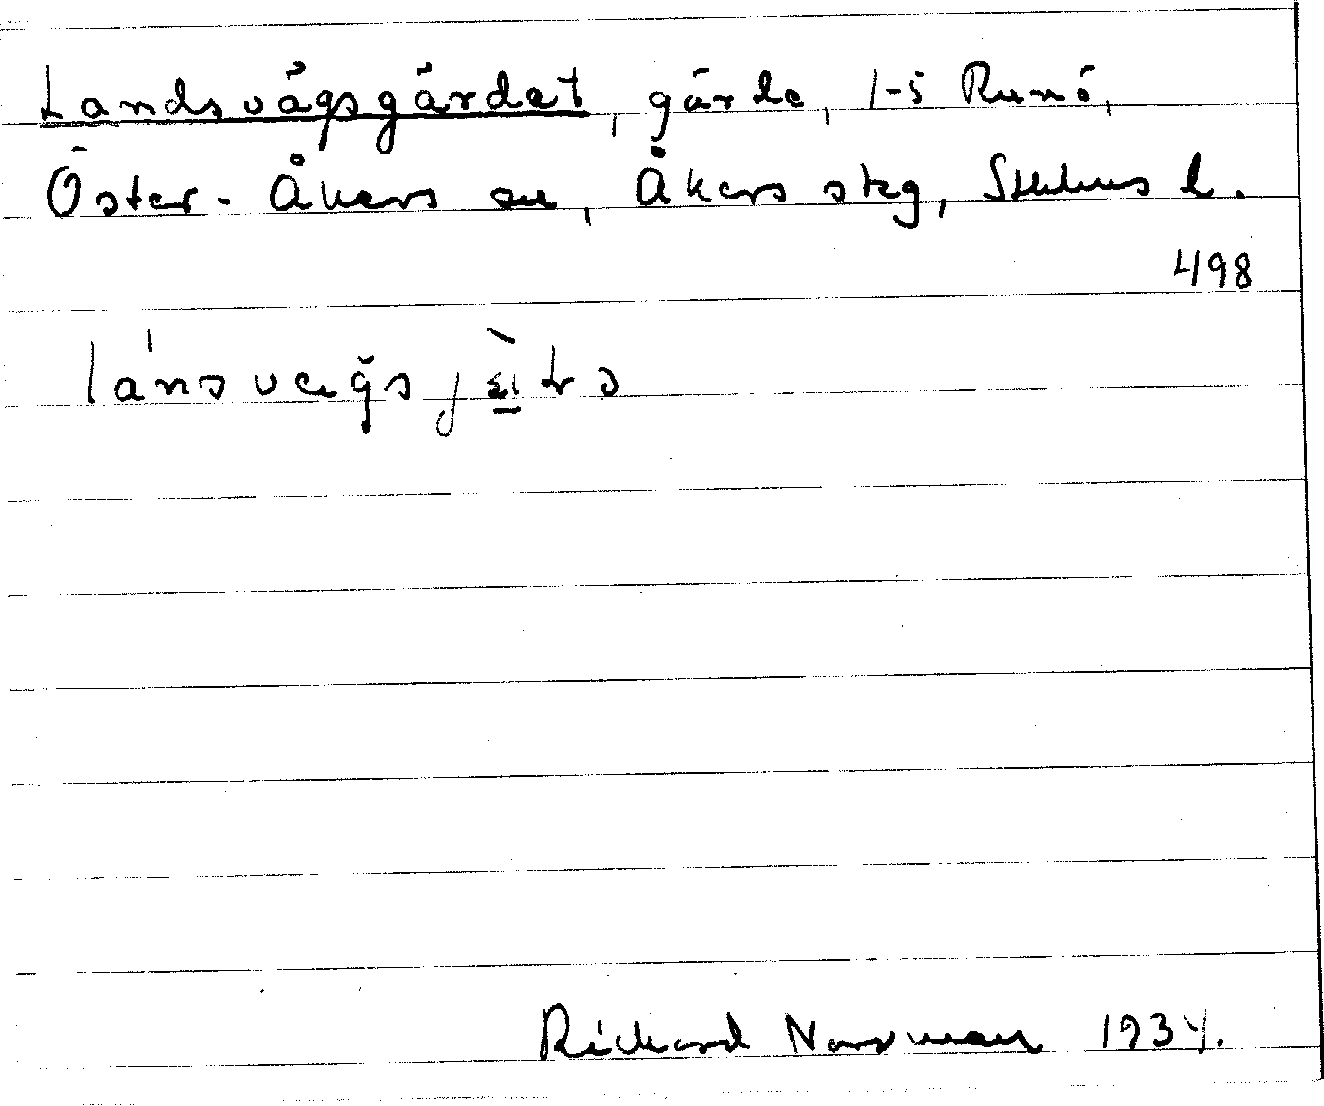 Landsvägsgärdet, gärde, 1-5 Runö,
Öster-Åkers sn, Åkers skg, Sthlms l.
498
Rickard Norrman 1934.